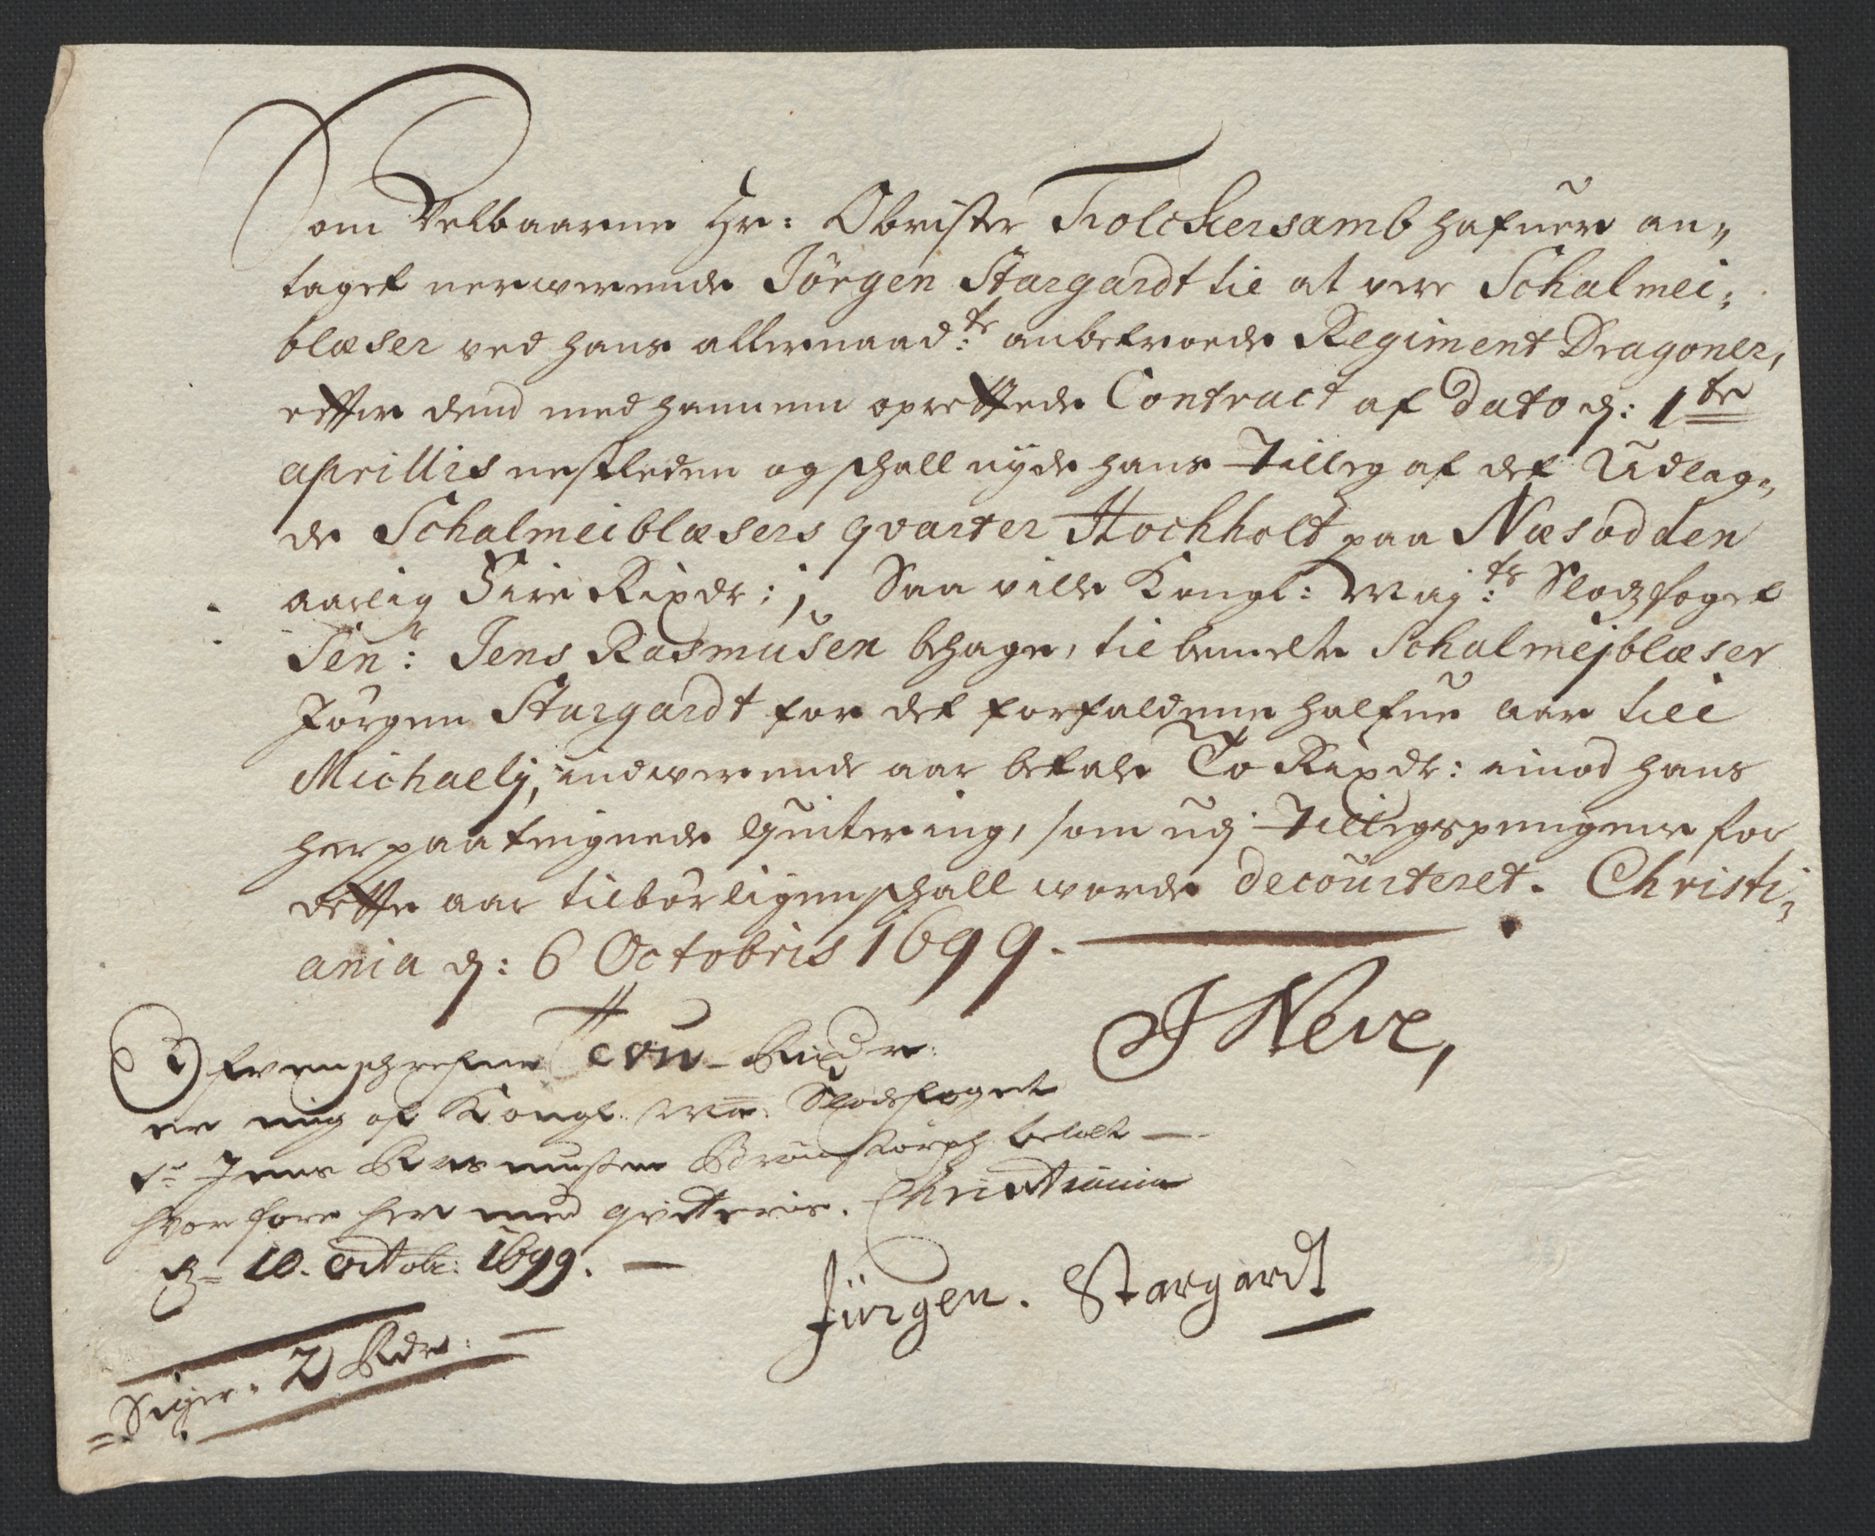 Som Velbaarne Hr: Obrister Folckersamb hafuer an-
taget nerwerende Jörgen Stargardt til at vere Schalmei-
blæser ved hans allernaad:ste anbetroede Regiment Dragoner,
effter dend med hannem oprettede Contract af dato d: 1te
aprillis nestleden og schall nyde hans Tilleg af det Udlag-
de Schalmeiblæsers qvarter Hochholt paa Næsodden
aarlig Fire Rixdr:, Saa ville Kongl: May:ts Slodzfoget
Sen:r Jens Rasmusen behage, til bemelte Schalmejblæser
Jörgen Stargardt for det forfaldene halfue aar till
Michaely, indwerende aar betale To Rixdr: imod hans
herpaa teignede Quitering, som udj Tillegspengene for
dette aar tilbörligen schall worde decourteret. Christi-
ania d: 6 Octobris 1699.
J Neve,
Ofvenschrefne Tvu Rixdr:
er mig af Kongl: Ma: Slodsfoget
Sr Jens Rasmussen betalt
hvorfore her med qvitteris. Christiania
d= 10. octobr: 1699.
Jürgen. Stargardt
Siger. 2 Rdr: